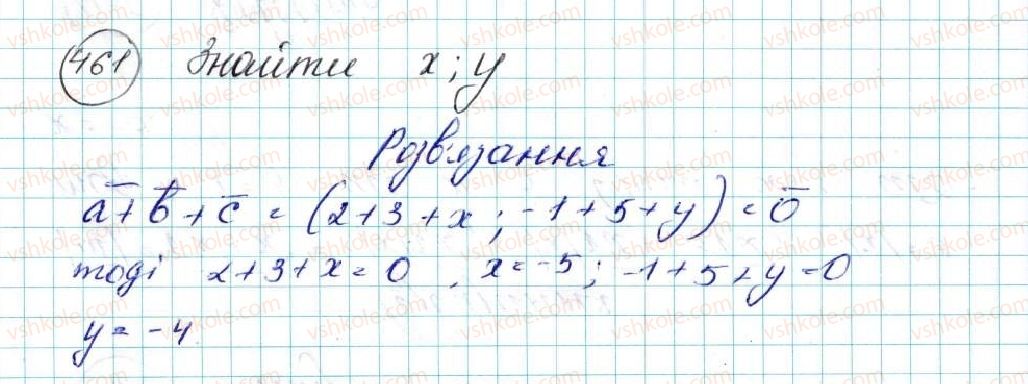 461 Знайти x; y
Розв'язання
a̅ + b̅ + c̅ = (2+3+x; -1+5+y) = 0̅
тоді 2+3+x=0, x=-5; -1+5+y=0
y = -4